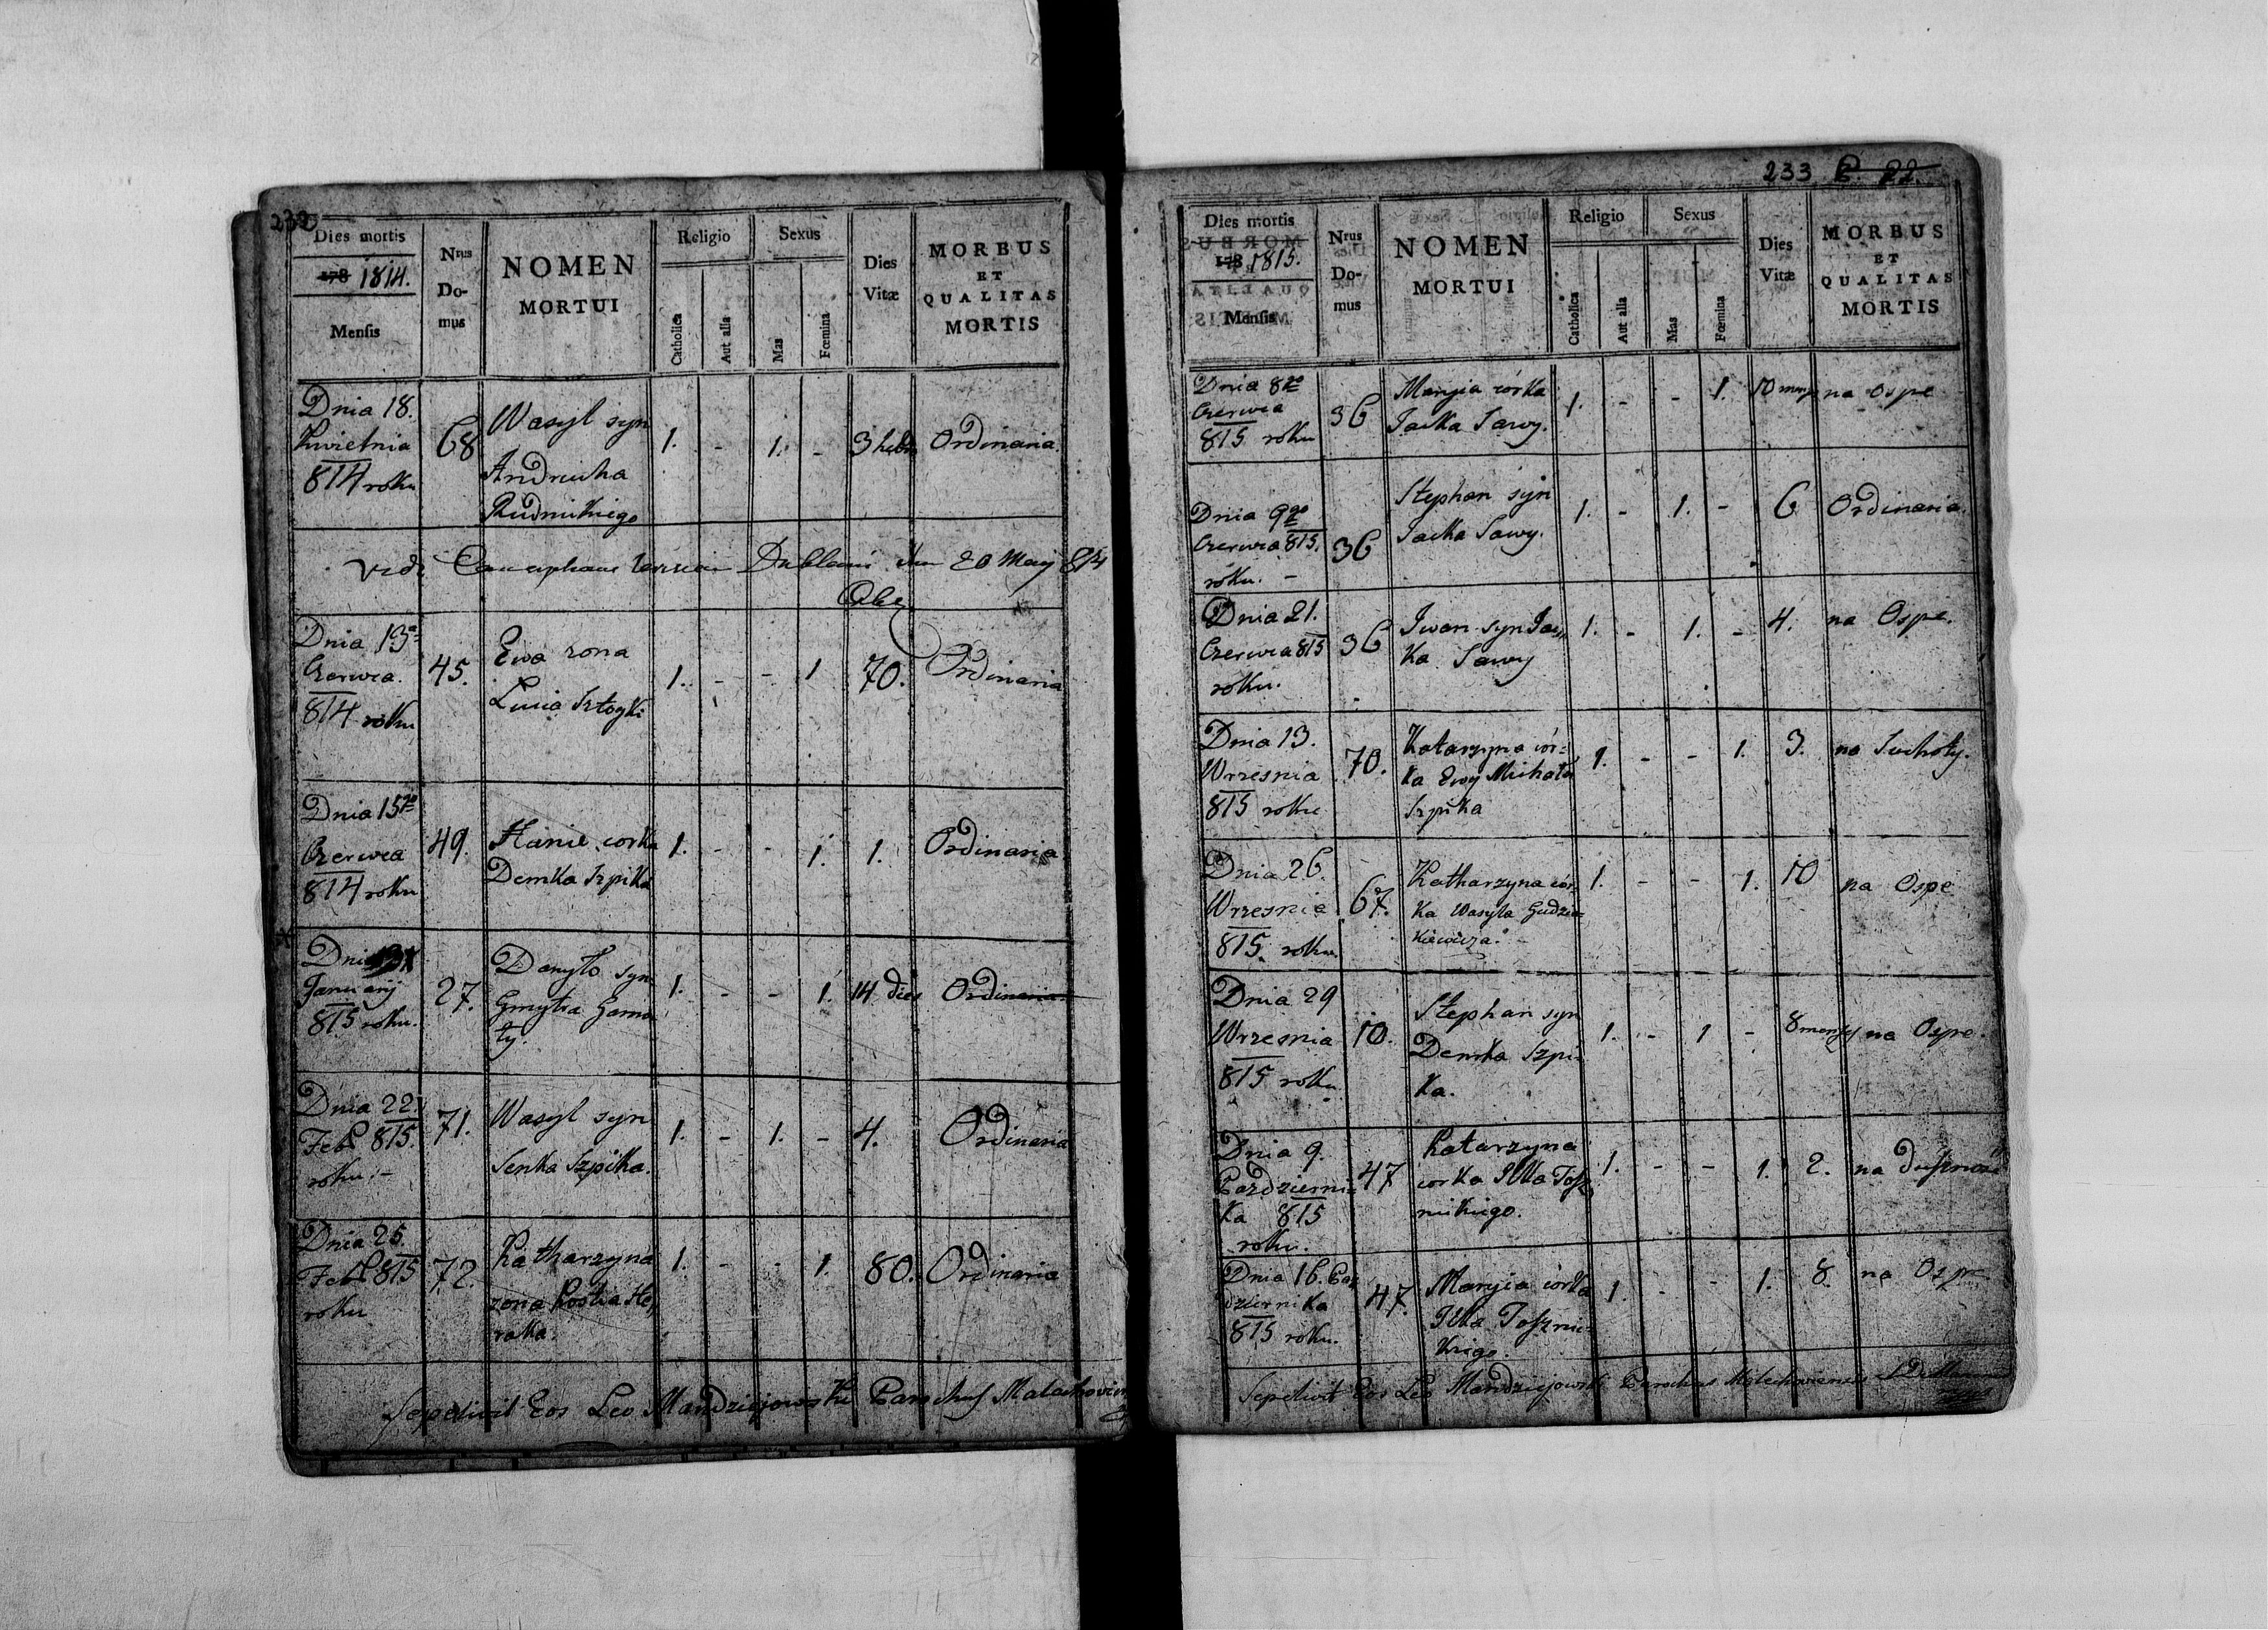 232
Dies mortis
178 1814.
Mensis
Nrus
Do-
mus
NOMEN
MORTUI
Religio
Catholica
Aut alia
Sexus
Mas
Fœmina
Dies
Vitæ
MORBUS
ET
QUALITAS
MORTIS
Dnia 18.
Kwietnia
814 roku
68
Wasyl syn
Andrucha
Rudnickiego
1. - 1. -
3
Ordinaria.
Vidi Dublani 20 Maij 814
Dnia 13
Czerwca.
814 roku
45.
Ewa zona
1. - - 1
70.
Ordinaria
Dnia 15
Czerwca
814 roku
49.
Hania corka
Demka Szpika
1. - - 1.
1.
Ordinaria
Dnia
Januarij
815 roku.
27.
Danyło syn
Gmytra Gama
ty.
1. - - 1.
14 dies
Ordinaria
Dnia 22.
Feb. 815.
roku. -
71.
Wasyl syn
Senka Szpika.
1. - 1. -
4.
Ordinaria
Dnia 25.
Feb. 815
roku
72.
Katharzyna
zona
raka.
1. - - 1.
80.
Ordinaria
Sepelivit Eos Leo Mandziejowski Parochus
233 22.
Dies mortis
178 1815.
Mensis
Nrus
Do-
mus
NOMEN
MORTUI
Religio
Catholica
Aut alia
Sexus
Mas
Fœmina
Dies
Vitæ
MORBUS
ET
QUALITAS
MORTIS
Dnia 8
Czerwca
815 roku
36
Maryia córka
Jacka Sawy.
1. - - 1.
10
na Ospe
Dnia 9
Czerwca 815.
roku. -
36
Stephan syn
Jacka Sawy.
1. - 1. -
6
Ordinaria.
Dnia 21.
Czerwca 815
roku.
36
Iwan syn Jac
ka Sawy
1. - 1. -
4.
na Ospe.
Dnia 13.
Wrzesnia
815 roku
70.
Katarzyna cór=
ka Ewy Michała
Szpika
1. - - 1.
3.
na Suchoty.
Dnia 26.
Wrzesnia
815. roku
67.
Katharzyna cór-
ka Wasyla Gudzie=
kiewicza.
1. - - 1.
10
na Ospe
Dnia 29
Wrzesnia
815 roku
10.
Stephan syn
Demka Szpi
ka.
1. - 1 -
8
na Ospe.
Dnia 9.
Pazdzierni
ka 815
roku.
47
Katarzyna
corka Ilka
nickiego.
1. - - 1.
2.
na
Dnia 16. Paz
dziernika
815 roku.
47.
Maryia córka
Ilka
kiego.
1. - - 1.
8.
na Ospe
Sepelivit Eos Leo Mandziejowski Parochus